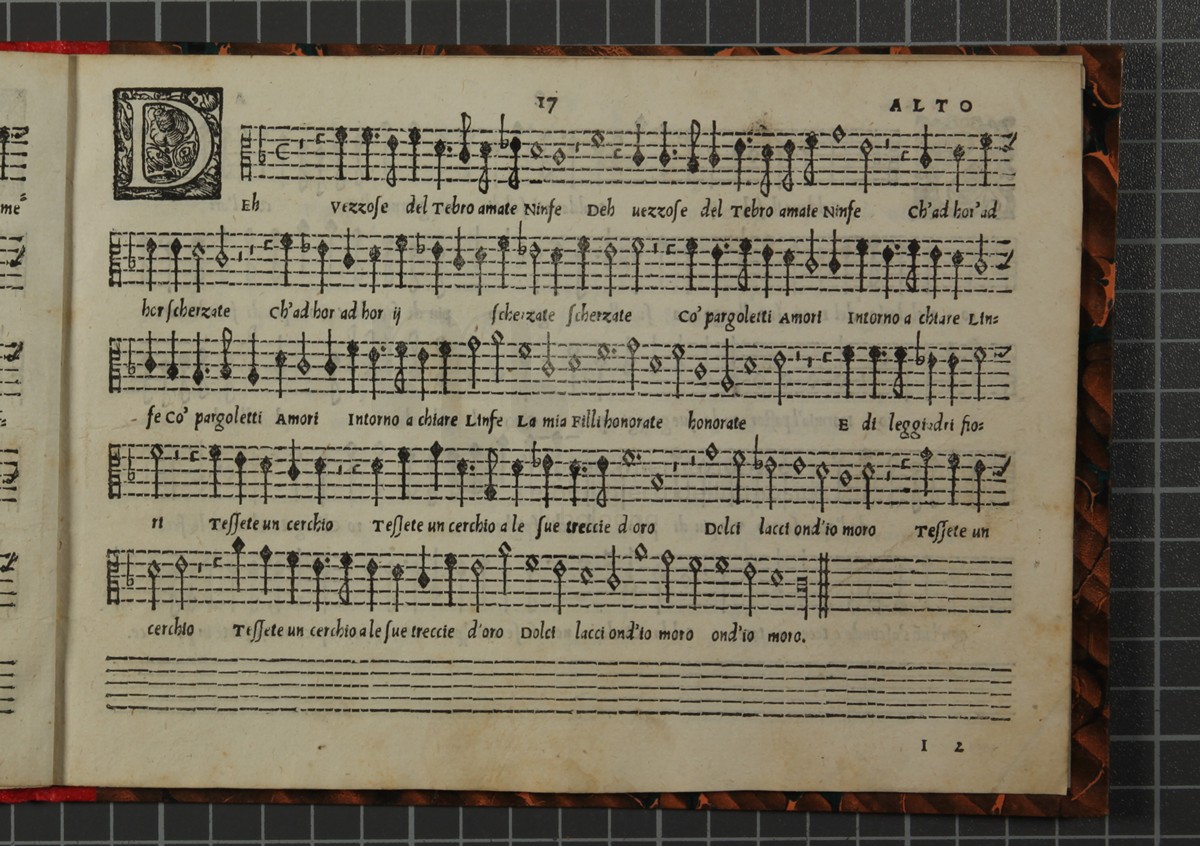 17 ALTO
DEh Vezzose del Tebro amate Ninfe Deh uezzose del Tebro amate Ninfe Ch'ad hor'ad
hor scherzate Ch'ad hor ad hor ij scherzate scherzate Co' pargoletti Amori Intorno a chiare Lin=
fe Co' pargoletti Amori Intorno a chiare Linfe La mia Filli honorate honorate E di leggiadri fio=
ri Tessete un cerchio Tessete un cerchio a le sue treccie d'oro Dolci lacci ond'io moro Tessete un
cerchio Tessete un cerchio a le sue treccie d'oro Dolci lacci ond'io moro ond'io moro.
I 2